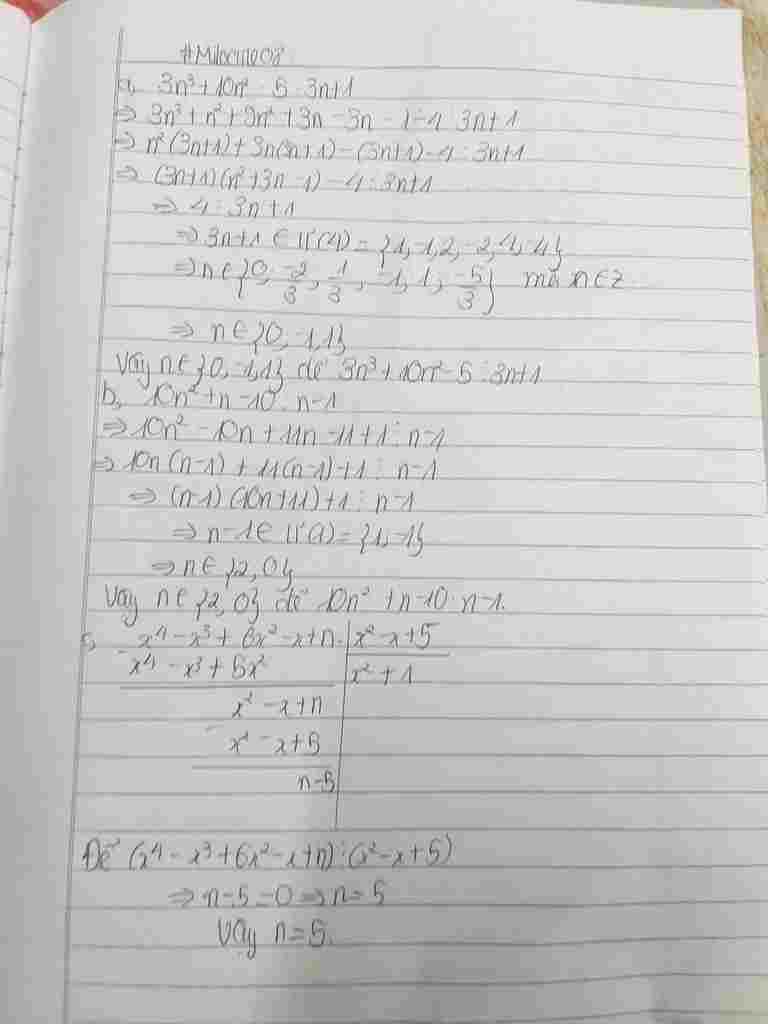 #Milocute08
a, 3n³+10n² - 5 ⋮ 3n+1
⇒ 3n³+n²+9n²+3n-3n-1-4 ⋮ 3n+1
⇒ n²(3n+1)+3n(3n+1)-(3n+1)-4 ⋮ 3n+1
⇒ (3n+1)(n²+3n-1)-4 ⋮ 3n+1
⇒ 4 ⋮ 3n+1
⇒ 3n+1 ∈ Ư(4) = {1,-1,2,-2,4,-4}
⇒ n ∈ {0, -2/3, 1/3, -1, 1, -5/3} mà n∈Z
⇒ n ∈ {0,-1,1}
Vậy n∈{0,-1,1} để 3n³+10n²-5 ⋮ 3n+1
b, 10n²+n-10 ⋮ n-1
⇒ 10n²-10n+11n-11+1 ⋮ n-1
⇒ 10n(n-1)+11(n-1)+1 ⋮ n-1
⇒ (n-1)(10n+11)+1 ⋮ n-1
⇒ n-1 ∈ Ư(1) = {1,-1}
⇒ n∈{2,0}
Vậy n∈{2,0} để 10n²+n-10 ⋮ n-1.
c, x⁴-x³+6x²-x+n | x²-x+5
- x⁴-x³+5x² | x²+1
x²-x+n
- x²-x+5
n-5
Để (x⁴-x³+6x²-x+n) ⋮ (x²-x+5)
⇒ n-5=0 ⇒ n=5
Vậy n=5.